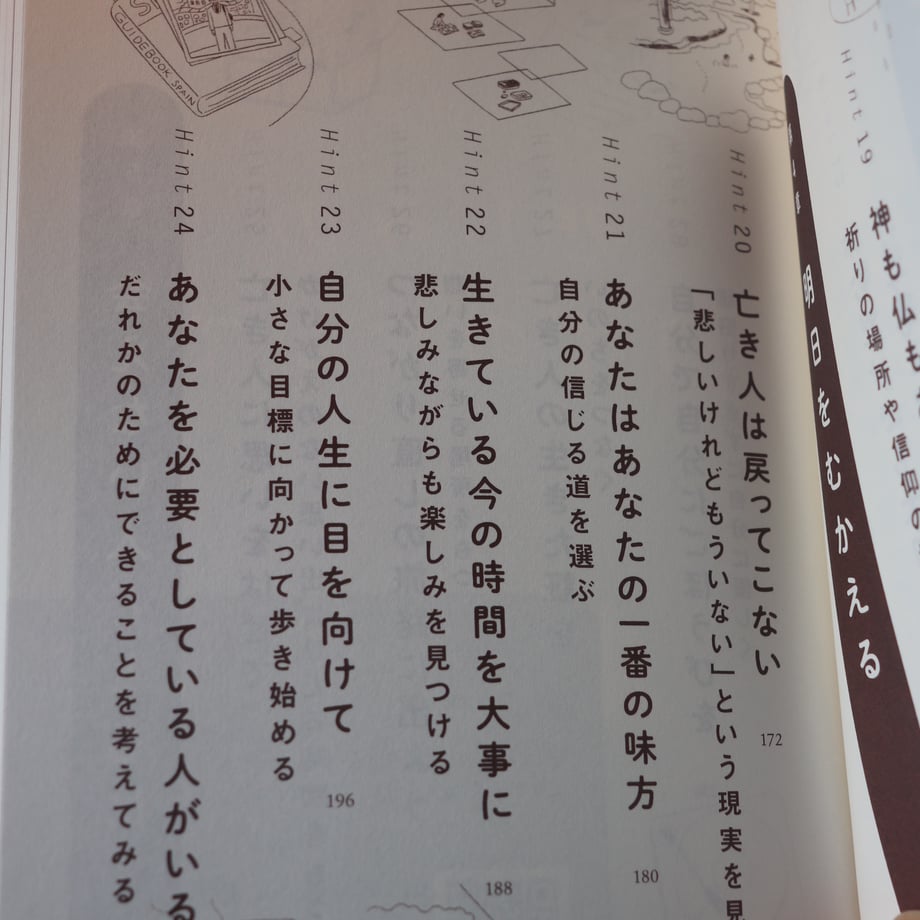 Hint 19
神も仏も
祈りの場所や信仰の
明日をむかえる
Hint 20
亡き人は戻ってこない
172
「悲しいけれどもういない」という現実を見
Hint 21
あなたはあなたの一番の味方
180
自分の信じる道を選ぶ
Hint 22
生きている今の時間を大事に
188
悲しみながらも楽しみを見つける
Hint 23
自分の人生に目を向けて
196
小さな目標に向かって歩き始める
Hint 24
あなたを必要としている人がいる
だれかのためにできることを考えてみる
GUIDEBOOK SPAIN